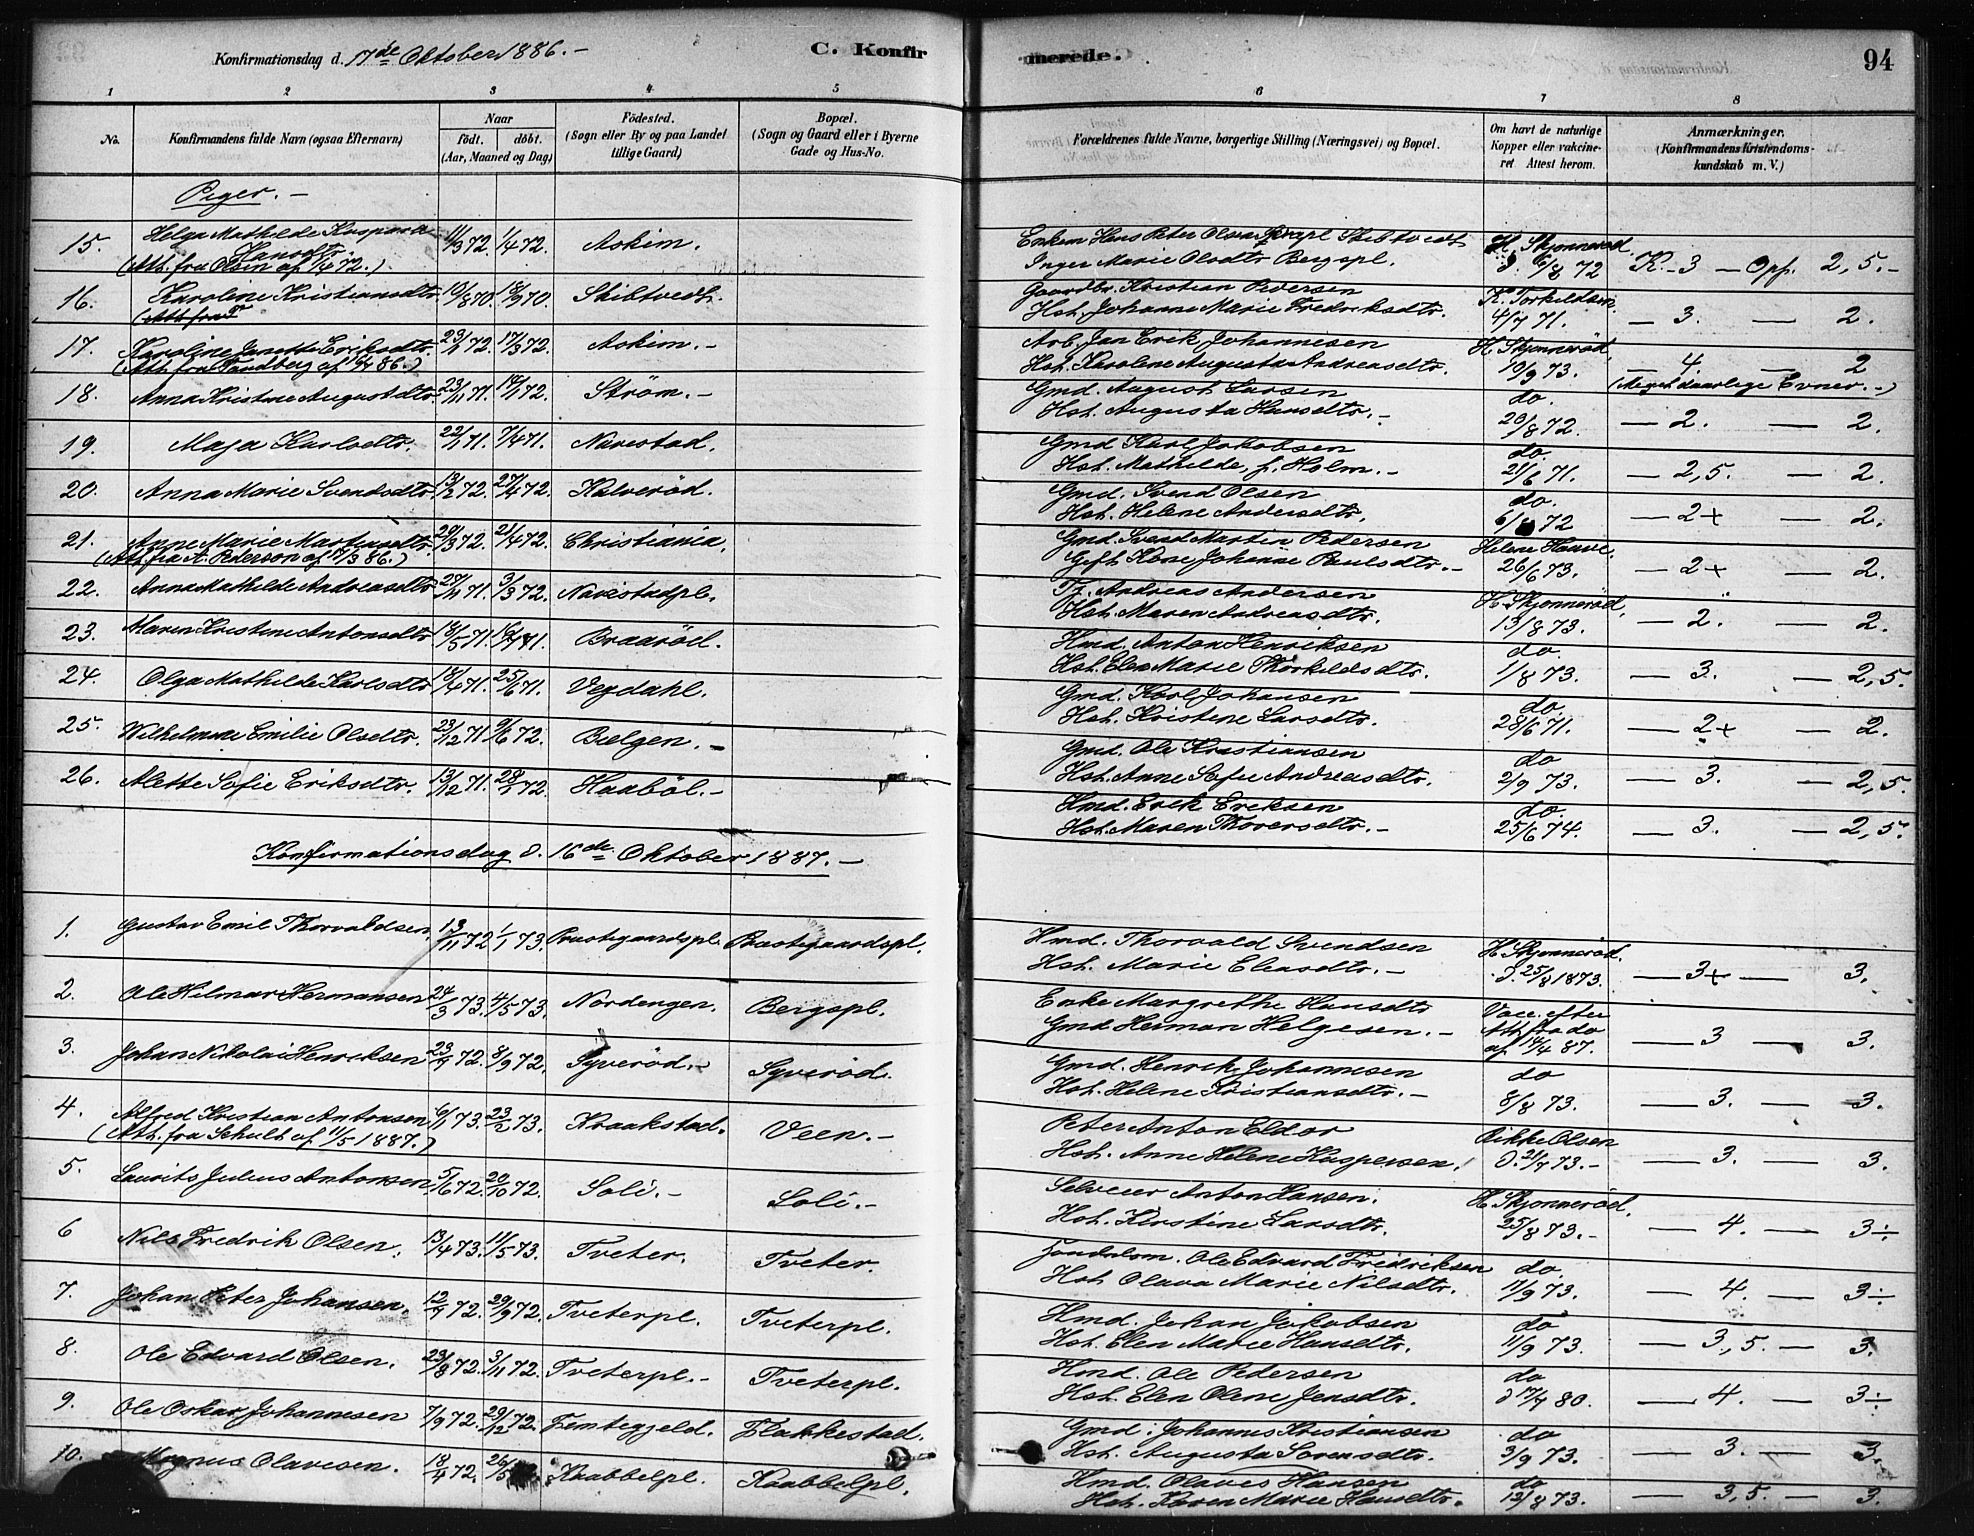 Konfirmationsdag d. 17de Oktober 1886. –
C. Konfirmerede.
94
1 2 3 4 5 6 7 8
No.
Konfirmandens fulde Navn (ogsaa Efternavn)
Naar
födt. döbt.
(Aar, Maaned og Dag)
Födested.
(Sogn eller By og paa Landet
tillige Gaard)
Bopæl.
(Sogn og Gaard eller i Byerne
Gade og Hus-No.
Forældrenes fulde Navne, borgerlige Stilling (Næringsvei) og Bopæl.
Om havt de naturlige
Kopper eller vakcine-
ret Attest herom.
Anmærkninger.
(Konfirmandens Kristendoms-
kundskab m. V.)
Piger. –
15. Helga Mathilde Hansdtr. 11/3 72. 1/4 72. Askim. Hans Peter Olsen Skibtvedt
(Att. fra Olsen af 1/4 72.) Inger Marie Olsdtr Bergspl. H. Skjønnerød. 6/8 72 K. – 3 – Opf. 2,5. –
16. Karoline Kristiansdtr. 19/8 70. 18/9 70. Skibtvedt. Gaardbr. Kristian Pedersen
Hst. Johanne Marie Fredriksdtr. K. Torkildsen. 4/7 71. – 3. – 2.
17. Karoline Janette Eriksdtr. 23/1 72. 17/3 72. Askim. – Arb. Jan Erik Johannesen
(Att. fra Sandberg af 86.) Hst. Karolene Augusta Andreasdtr. H. Skjønnerød 19/9 73. – 4. – 2
(Meget daarlige Evner. –)
18. Anna Kristine Augustdtr. 23/11 71. 14/1 72. Strøm. – Gmd. August Larsen
Hst. Augusta Hansdtr. – do. 20/8 72. – 2. – 2.
19. Maja Karlsdtr. 22/1 71. 7/4 71. Navestad. Gmd Karl Jakobsen
Hst. Mathilde, f. Holm. – do. 21/6 71. – 2,5. – 2.
20. Anna Marie Svendsdtr. 13/2 72. 27/4 72. Kalverød. Gmd. Svend Olsen
Hst. Helene Andersdtr. do. 72 – 2+ – 2.
21. Anne Marie Martinsdtr. 20/3 72. 21/4 72. Christiania. Gmd. Svend Martin Pedersen
(Att. fra A. Pederson af 86.) Gift. Kone Johanne Paulsdtr. – Helene Hauve. 26/6 73. – 2+ – 2.
22. Anna Mathilde Andreasdtr 27/11 71. 3/3 72. Navestadpl. Tj. Andreas Andersen
Hst. Maren Andreasdtr. H. Skjønnerød. 13/8 73. – 2. – 2.
23. Maren Kristine Antonsdtr 18/5 71. 71. Braarød. Hmd. Anton Henriksen
Hst. Elen Marie Thorkildsdtr. do. 1/8 73. – 3. – 2,5.
24. Olga Mathilde Karlsdtr 18/4 71. 25/6 71. Vegdahl. Gmd. Karl Johansen
Hst. Kristine Larsdtr. do. 28/6 71. – 2+ – 2.
25. Wilhelmine Emilie Olsdtr. 23/12 71 9/6 72. Bælgen. – Gmd. Ole Kristiansen
Hst. Anne Sofie Andreasdtr. do 2/9 73. – 3. – 2,5.
26. Alette Sofie Eriksdtr. 13/12 71. 28/1 72. Haaböl. – Hmd. Erik Eriksen
Hst. Maren Thoversdtr. – do. 25/6 74. – 3. – 2,5.
Konfirmationsdag d. 16de Oktober 1887. –
1. Gustav Emil Thorvaldsen. 13/11 72 1/1 73. Prestegaardspl. Prestegaardspl. Hmd. Thorvald Svendsen
Hst. Marie Eleasdtr. – H. Skjønnerød. d. 25/8 1873. – 3+ – 3.
2. Ole Hilmar Hermansen 24/3 73. 4/5 73. Nordengen. Bergspl. Enke Margrethe Hansdtr
Gmd Herman Helgesen. – Vacc. efter Att. fra do af 14/4 87. – 3 – 3.
3. Johan Nikolai Henriksen 23/7 72. 8/9 72. Syverød. – Syverød. Gmd. Henrik Johannesen
Hst. Helene Kristiansdtr. – do 8/8 73. – 3. – 3.
4. Alfred Kristian Antonsen 6/1 73. 23/2 73. Kraakstad. Veen. – Peter Anton Eldor
(Att. fra Schult af 11/5 1887.) Hst. Anne Helene Kaspersen. Rikke Olsen d. 21/7 73. – – 3. – 3.
5. Laurits Julius Antonsen 5/6 72. 20/10 72. Soli. – Soli. – Selveier Anton Hansen.
Hst. Kirstine Larsdtr. H. Skjønnerød. 25/8 73. – – 4. – 3÷
6 Nils Fredrik Olsen. 13/4 73. 11/5 73. Tveter. Tveter. Ole Edvard Fredriksen
Hst. Olava Marie Nilsdtr. do. 11/9 73. – 4. – 3÷
7. Johan Peter Johansen. 12/7 72. 29/9 72. Tveterpl. Tveterpl. Hmd. Johan Jakobsen
Hst. Elen Marie Hansdtr. do 11/9 73. – 3,5. – 3.
8. Ole Edvard Olsen. 23/8 72. 3/11 72. Tveterpl. – Tveterpl. Hmd. Ole Pedersen
Hst. Elen Olene Jensdtr. do d 17/7 80. – 4. – 3÷
9. Ole Oskar Johannesen 7/9 72. 29/12 72. Femtegjeld. Flakkestad. Gmd. Johannes Kristiansen
Hst. Augusta Sorensdtr. do 3/9 73. – 3. – 3.
10. Magnus Olavesen. 18/4 72. 26/5 Kaabbelpl. Kaabbelpl. Hmd. Olaves Hansen
Hst. Karen Marie Hansdtr. do 12/8 73. – 3,5. – 3.